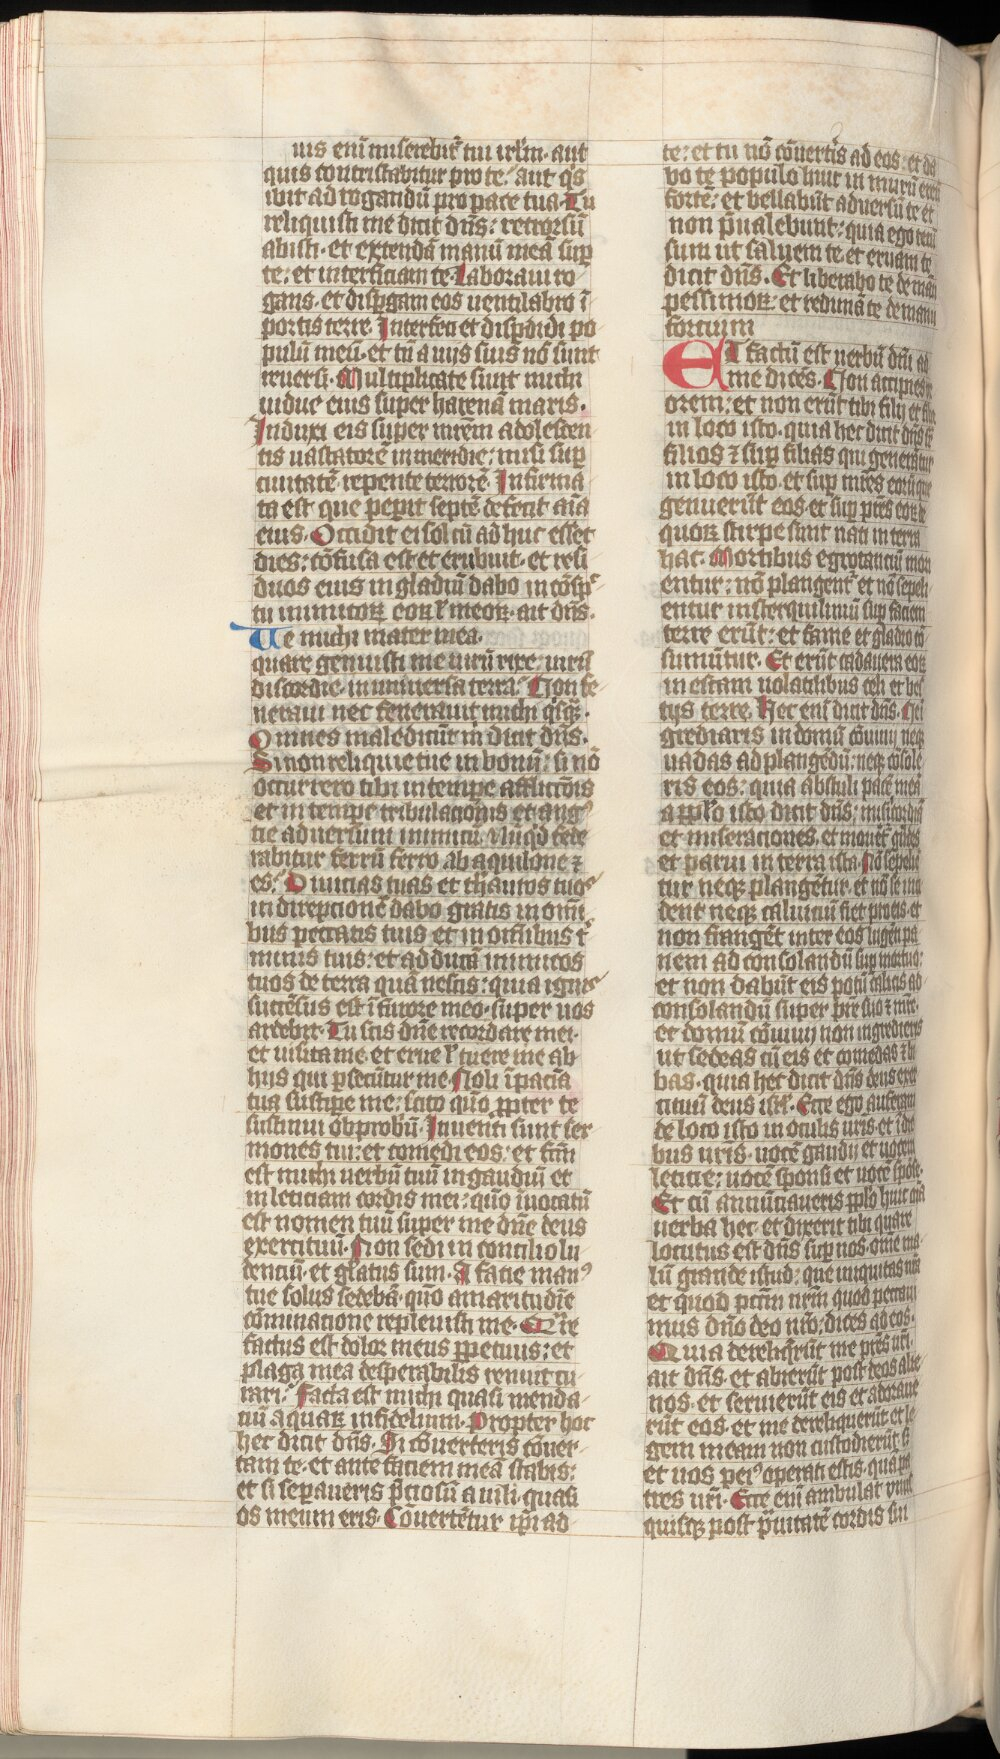 uis eni miserebit tui irlm. aut
quis contristabitur pro te. aut q̅s
ibit ad rogandū pro pace tua. Tu
reliquisti me dicit dn̅s: retrorsū
abisti. et extendā manū meā sup
te: et interficiam te. Laboraui ro
gans. et disp̲gam eos uentilabro ī
portis terre. Interfeci et disp̲didi po
pulū meū. et tn̄ a uijs suis nō sunt
reuersi. Multiplicate sunt michi
uidue eius super harenā maris.
Induxi eis super mr̄em adolescen
tis uastatorē in meridie: misi sup
ciuitatē repente terrorē. Infirma
ta est que pep̲it septē. defecit aīa
eius. Occidit ei sol cū adhuc esset
dies: cōfusa est et erubuit. et resi
duos eius in gladiū dabo in cōsp̲c
tu inimicoꝝ eoꝝ ł meoꝝ. ait dn̅s.
Ue michi mater mea.
quare genuisti me uirū rixe. uirū
discordie. in uniuersa terra. Non fe
neraui nec fenerauit michi q̅sqꝫ.
Omnes maledicūt m̄ dicit dn̅s.
Si non reliquie tue in bonū: si nō
occurrero tibi in tempe afflicc̄onis
et in tempe tribulac̄onis et angꝰ
tie aduersum inimicū. Nūqd fede
rabitur ferrū ferro ab aquilone ⁊
es. Diuicias tuas et th̄auros tuos
in direpcionē dabo gratis in omī
bus peccatis tuis et in om̄ibus t̄
minis tuis: et adducā inimicos
tuos de terra quā nescis: quia ignis
succēsus est ī furore meo. super uos
ardebit. Tu scis dn̄e recordare mei.
et uisita me. et erue ł tuere me ab
hijs qui p̲secūtur me. Noli ī paciā
tua suscipe me: scito qm̄o pp̲ter te
sustinui obprobriū. Inuenti sunt ser
mones tui: et comedi eos: et fc̄m
est michi uerbū tuū in gaudiū et
in leticiam cordis mei: qm̄o īuocatū
est nomen tuū super me dn̄e deus
exercituū. Non sedi in concilio lu
denciū. et gl̄atus sum. A facie manꝰ
tue solus sedebā. qm̄o amaritudīe
cōminatione replesti me. Quare
factus est dolor meus p̲petuus: et
plaga mea desperabilis renuit cu
rari. Facta est michi quasi menda
ciū aquaꝝ infidelium. Propter hoc
hec dicit dn̅s. Si cōuerteris cōuer
tam te. et ante faciem meā stabis:
et si sep̲aueris p̄ciosū a uili. quasi
os meum eris. Cōuertētur ip̄i ad
te: et tu nō cōuertēis ad eos. et da
bo te populo huic in murū ereū
forte: et bellabūt aduersū te et
non p̄ualebunt: quia ego tecū
sum ut saluem te. et eruam te
dicit dn̅s. Et liberabo te de manu
pessimoꝝ. et redimā te de manu
fortium
ET factū est uerbū dn̄i ad
me dicēs. Non accipies ux
orem: et non erūt tibi filij et filie
in loco isto. quia hec dicit dn̅s sup
filios ⁊ sup filias qui generātur
in loco isto. et sup mr̄es eorū que
genuerūt eos. et sup pr̄es eoꝝ de
quoꝝ stirpe sunt nati in terra
hac. Mortibus egrotanciū mori
entur: nō plangent̄ et nō sepeli
entur in sterquiliniū sup faciem
terre erūt: et fame et gladio cō
sumūtur. Et erūt cadauera eoꝝ
in escam uolatilibus celi et bes
tijs terre. Hec eni dicit dn̅s. Ne ī
grediaris in domū cōuiuij neqꝫ
uadas ad plangēdū: neqꝫ cōsole
ris eos: quia abstuli pacē meā
a pp̲lo isto dicit dn̅s: misicordiā
et miseraciones. et morient̄ grādes
et parui in terra ista. Nō sepeliē
tur neqꝫ plangētur. et nō se inci
dent neqꝫ caluiciū fiet pro eis. et
non frangēt inter eos lugēti pa
nem ad consolandū sup mortuo:
et non dabūt eis potū calicis ad
consolandū super pr̄e suo ⁊ mr̄e.
et domū cōuiuij non ingredieris
ut sedeas cū eis et comedas ⁊ bi
bas. quia hec dicit dn̅s deus exer
cituū deus isr̄l. Ecce ego auferam
de loco isto in oculis ur̄is. et ī die
bus ur̄is. uocē gaudij et uocem
leticie: uocē sponsi et uocē spōse.
Et cū annūciaueris pp̲lo huic oīa
uerba hec. et dixerit tibi quare
locutus est dn̅s sup nos. ōme ma
lū grande istud: que iniquitas nr̄a
et quod pc̄c̄m nr̄m quod peccaui
mus dn̄o deo nr̄o: dices ad eos.
Quia dereliq̅rūt me pr̄es ur̄i.
ait dn̅s. et abierūt post deos alie
nos. et seruierūt eis et adoraue
rūt eos. et me dereliquerūt et le
gem meam non custodierūt. S
et uos peiꝰ operati estis. qua pa
tres ur̄i. Ecce eni ambulat vnus
quisqꝫ post p̄uitatē cordis sui